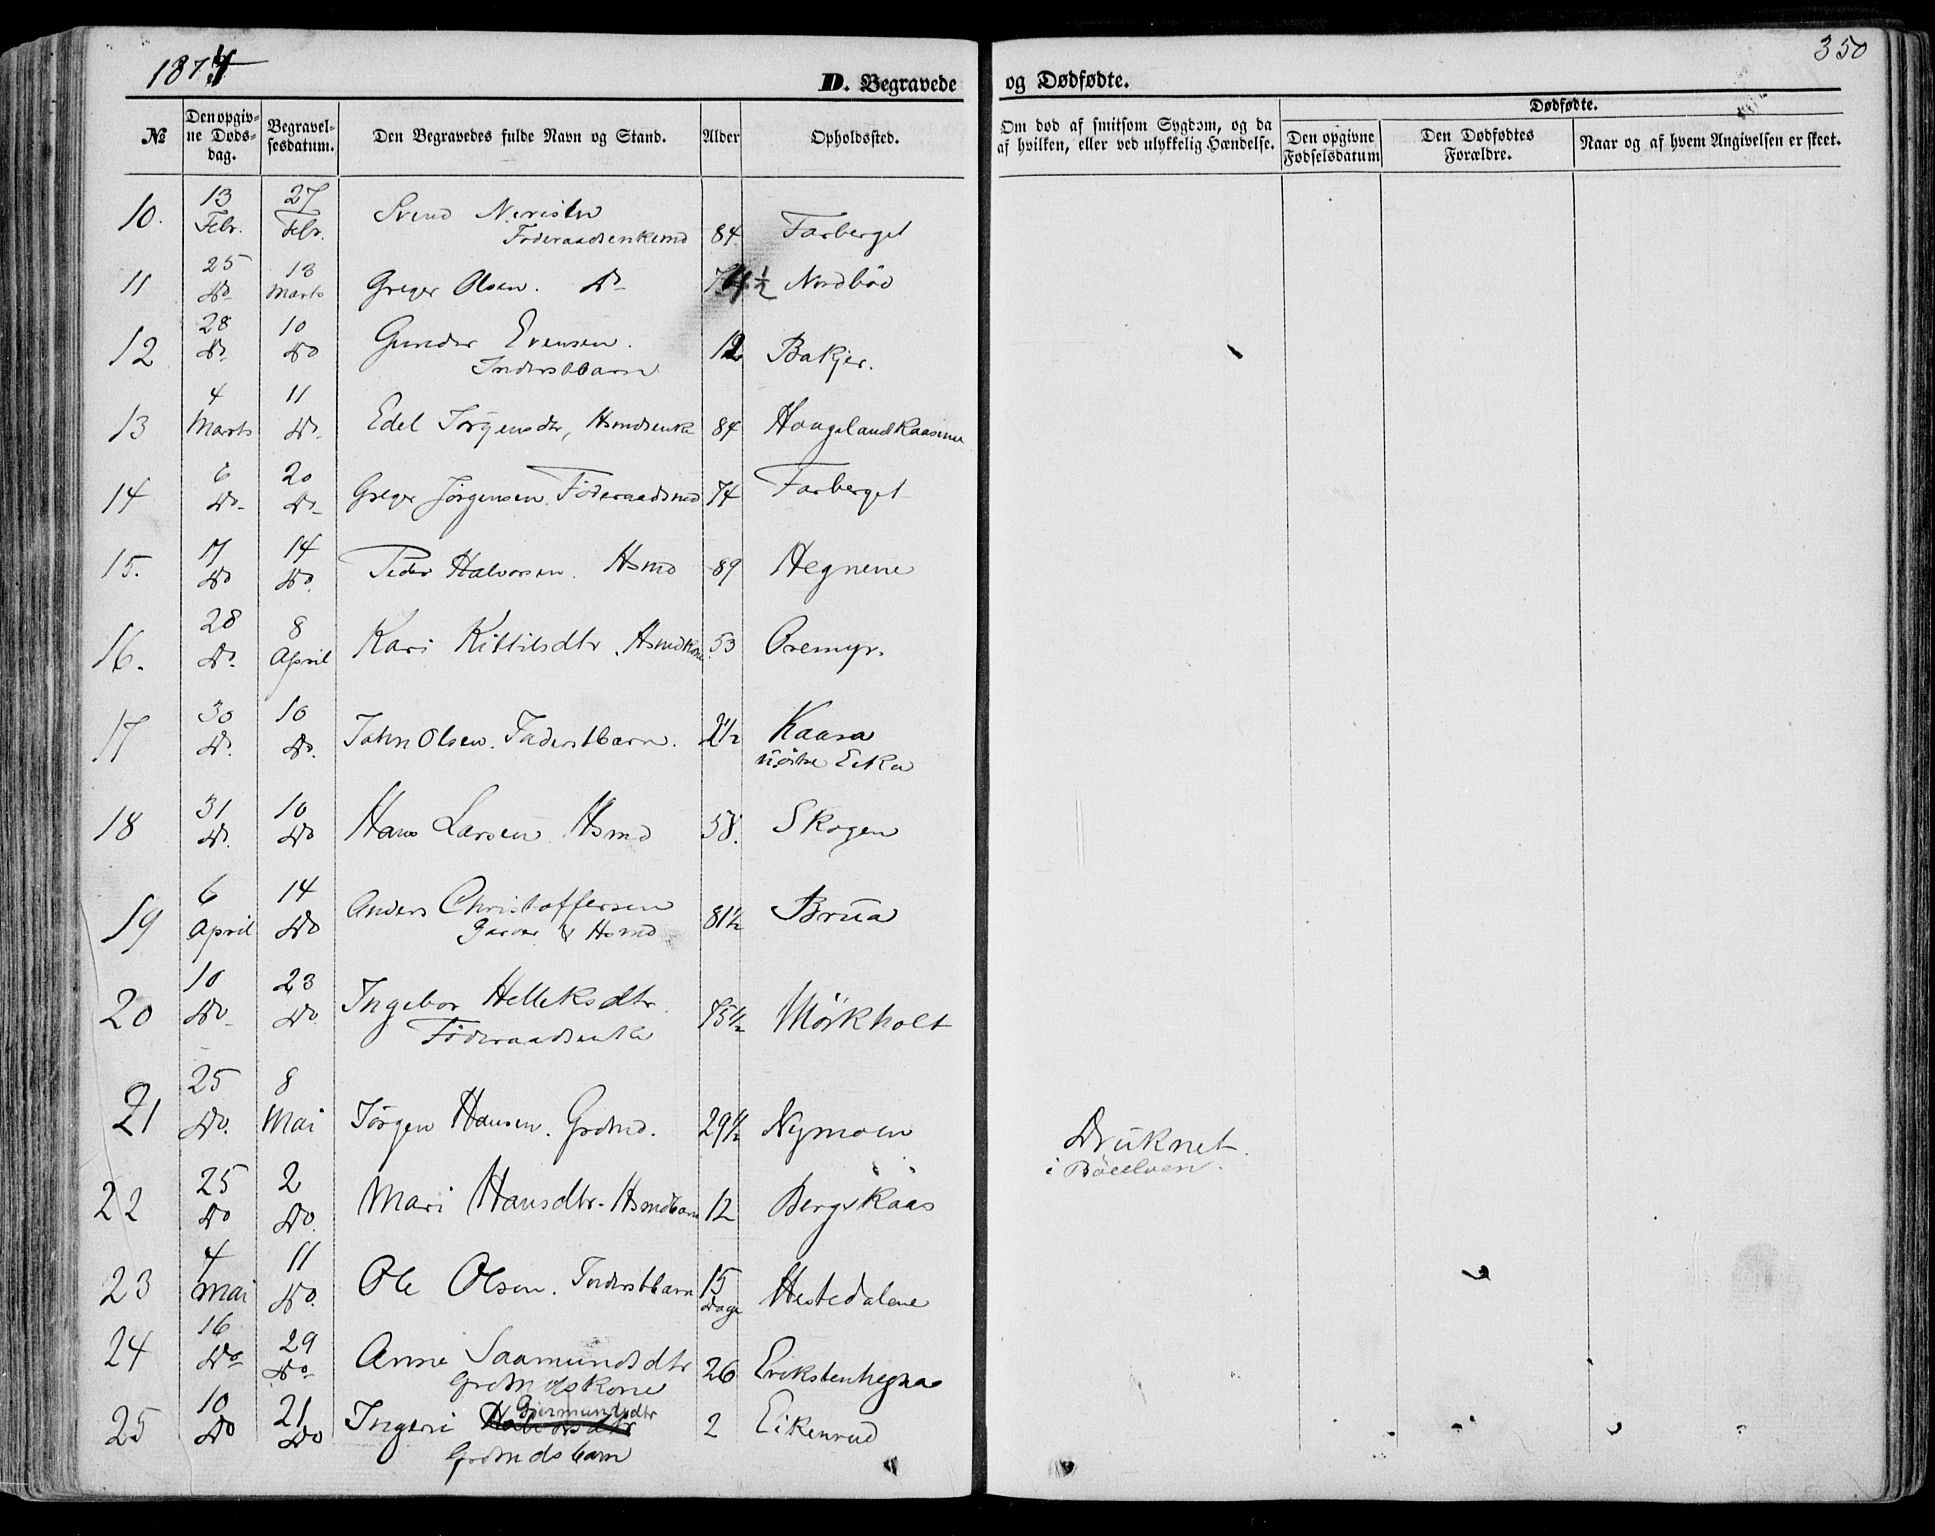 1874
350
D. Begravede og Dødfødte.
№
Den opgivne Dødsdag.
Begravelsesdatum.
Den Begravedes fulde Navn og Stand.
Alder
Opholdssted.
Om død af smitsom Sygdom, og da af hvilken, eller ved ulykkelig Hændelse.
Dødfødte.
Den opgivne Fødselsdatum
Den Dødfødtes Forældre.
Naar og af hvem Angivelsen er skeet.
10. 13 Febr. 27 Febr. Svend Föderaadsenkemd 84 Farberget
11 25 Do 13 Marts Greger Olsen. Do 74½ Nordböe
12 28 Do 10 Do Gunder Evensen. Inderstbarn 12 Bakjer.
13 4 Marts 11 Do Edel Jörgensdtr, Hsmdsenke 84 Haugelandkaasene
14 6 Do 20 Do Greger Jörgensen. Föderaadsmd 74 Farberget
15. 7 Do 14 Do Peder Halvorsen. Hsmd 89 Hegnene
16. 28 Do 8 April Kari Kittilsdtr. Hsmdkone 53 Oremyr.
17 30 Do 10 Do John Olsen. Inderstbarn. 2½ Kaasa nörlre Eika
18 31 Do 10 Do Hans Larsen Hsmd 58. Skogen
19 6 April 14 Do Anders Christoffersen Garver & Hsmd 81½ Brua
20 10 Do 23 Do Ingebor Helleksdtr. Föderaadsenke 75½ Mörkholt
21 25 Do. 8 Mai Jörgen Hansen. Grdmd. 29½ Nymoen Druknet. i Böeelven.
22 25 Do 2 Do. Mari Hansdtr. Hsmdbarn 12 Bergskaas
23 4 Mai 11 Do. Ole Olsen. Inderstbarn 15 Dage Hestedalene
24 16 Do 29 Do Anne Saamundsdtr Grdmdskone 26 Erikstenhegna
25 10 Do 21 Do Ingeri Halvorsdtr Gjermundsdtr Grdmdsbarn 2 Eikenrud